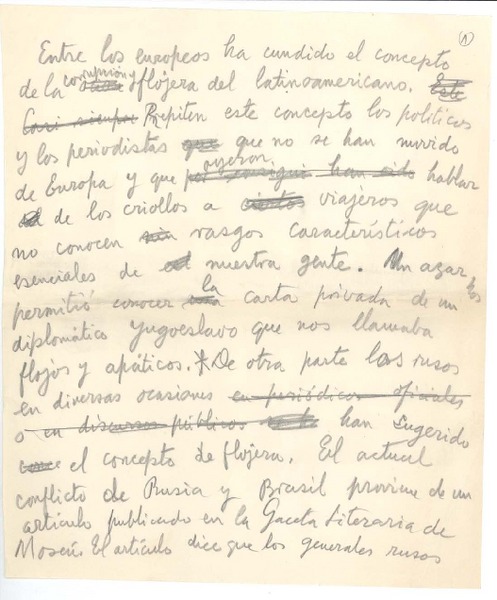 1
Entre los europeos ha cundido el concepto
de la corrupción y flojera del latinoamericano. Este
Casi siempre Repiten este concepto los políticos
y los periodistas que que no se han movido
de Europa y que oyeron por consiguiente han sido hablar
de los criollos a ciertos viajeros que
no conocen sin rasgos característicos
esenciales de nuestra gente. Un azar nos
permitió conocer la carta privada de un
diplomático yugoeslavo que nos llamaba
flojos y apáticos. De otra parte los rusos
en diversas ocasiones en periódicos oficiales
o en discursos públicos han sugerido
el concepto de flojera. El actual
conflicto de Rusia y Brasil proviene de un
artículo publicado en la Gaceta Literaria de
Moscú. El artículo dice que los generales rusos